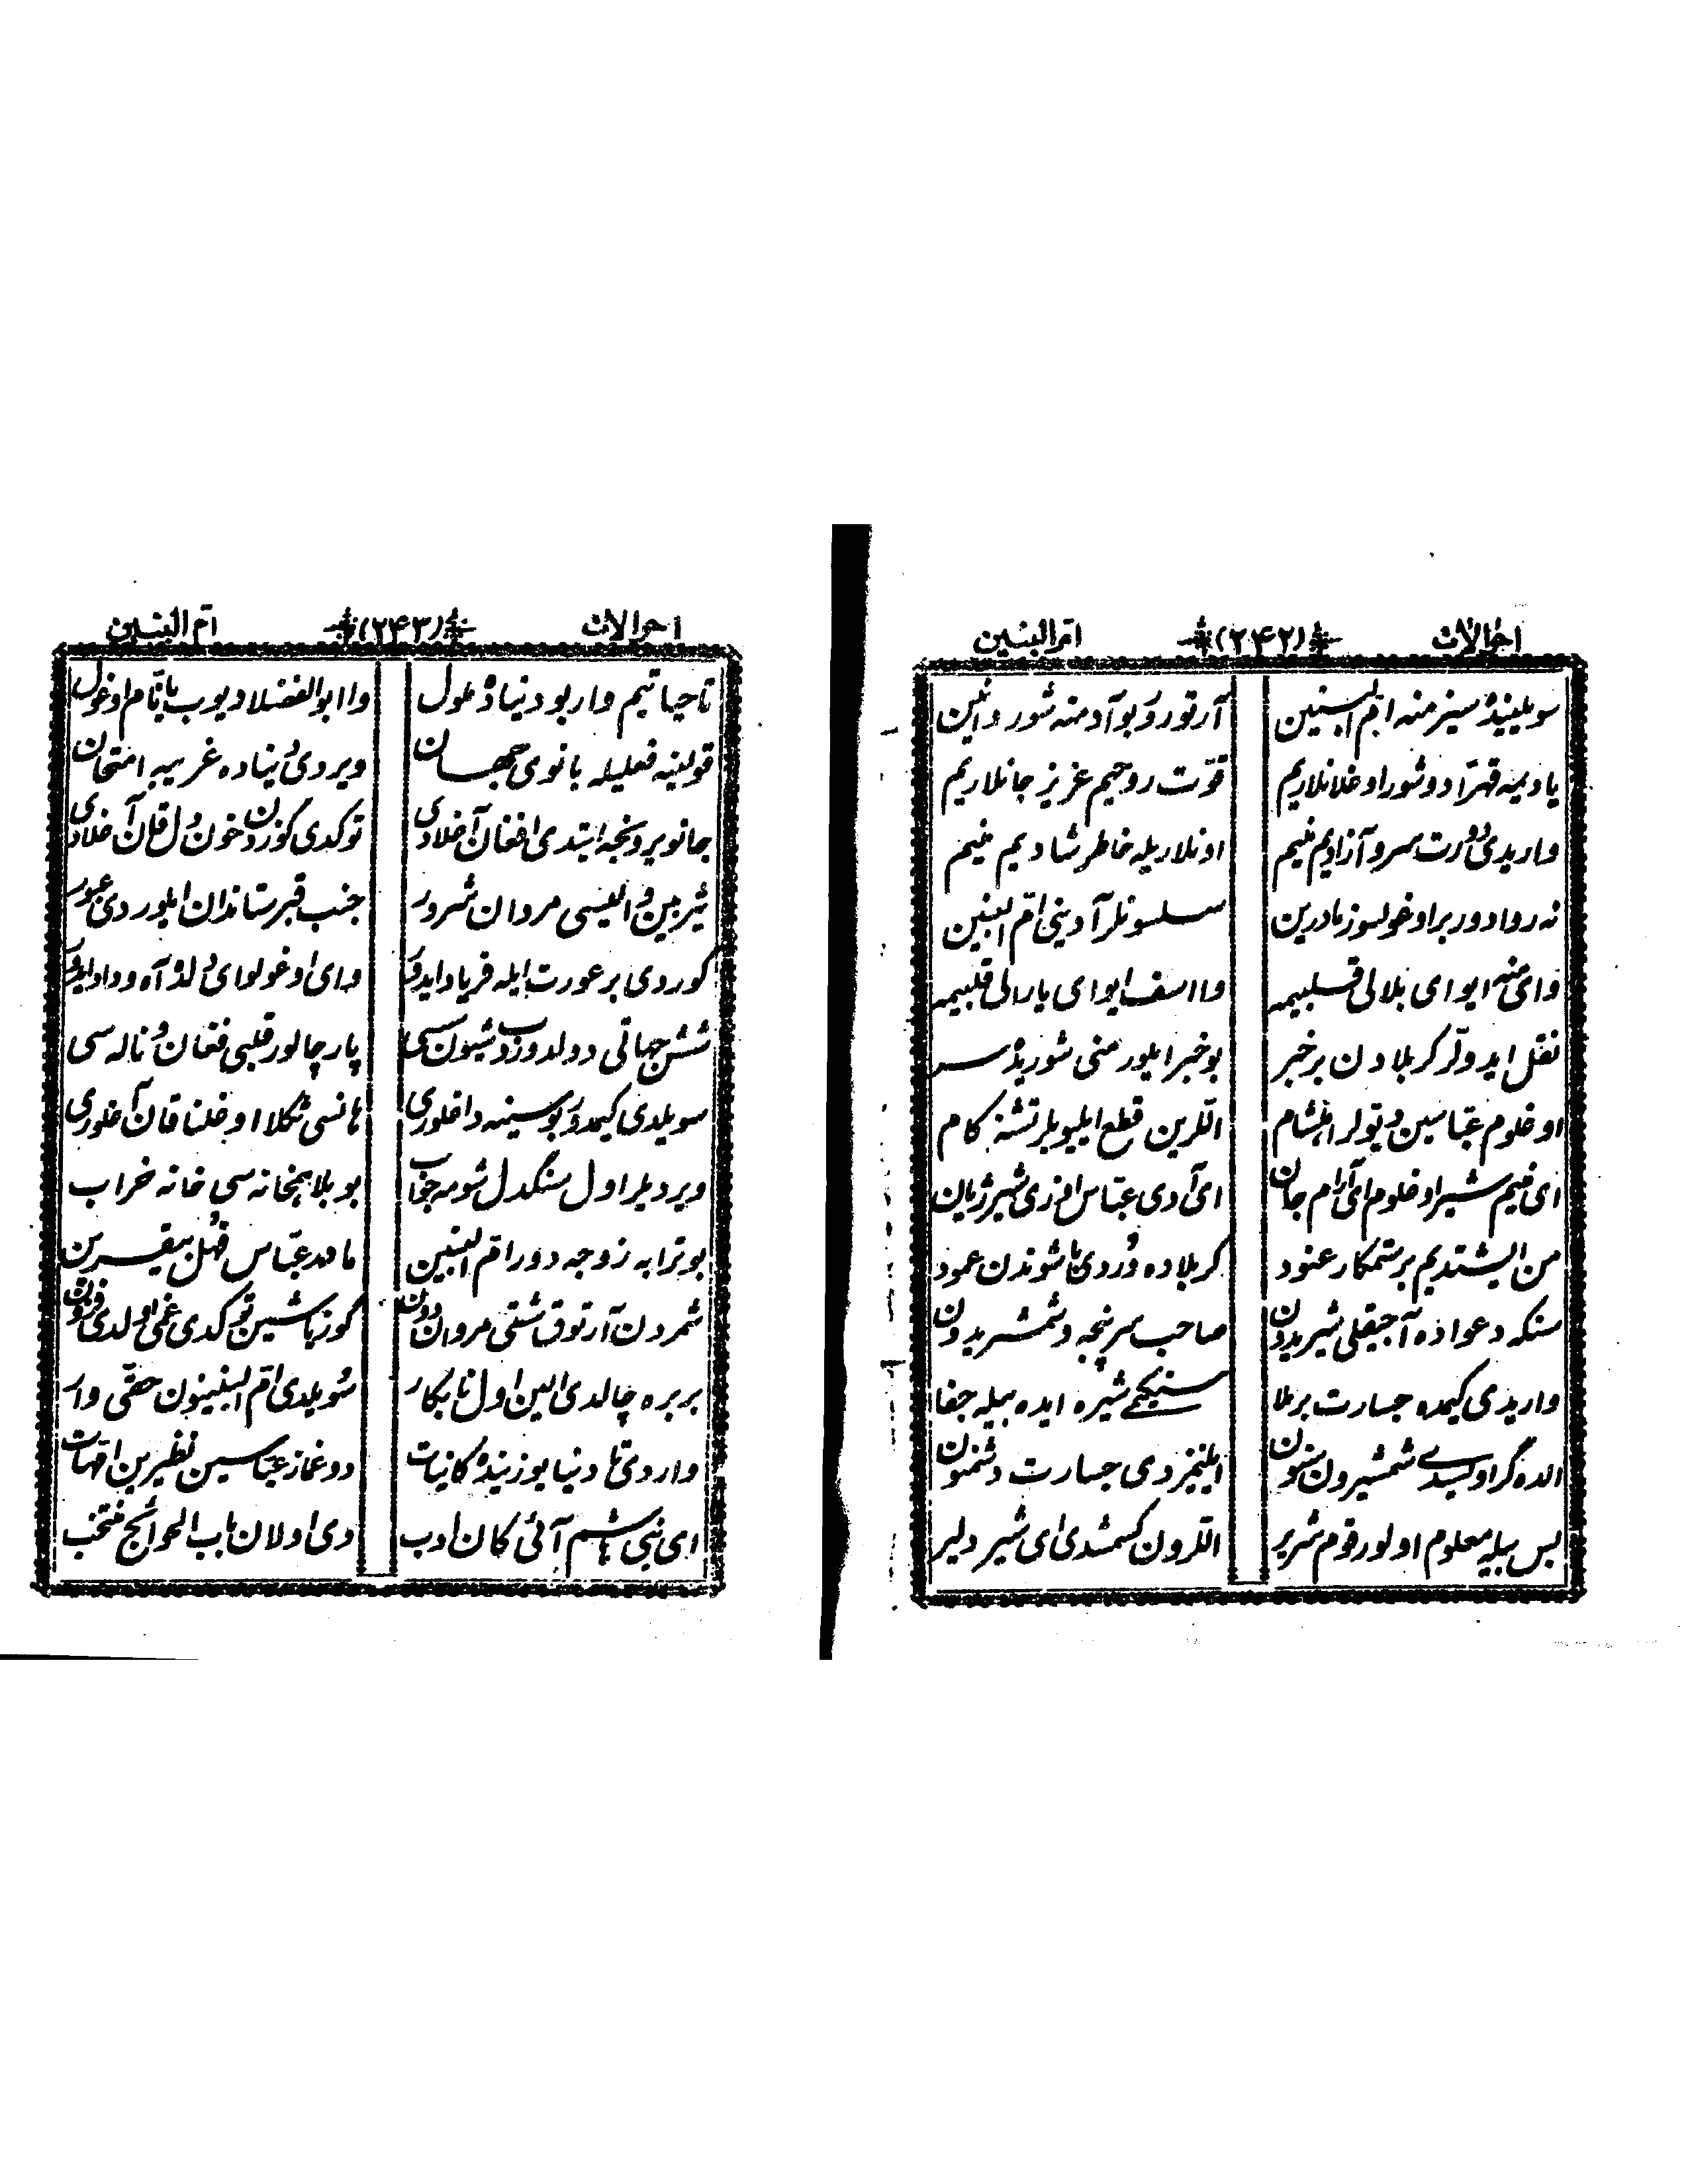 احوالات (۲۴۲) ام البنین
سویلینده سیز منه ام البنین آرتورور بو آد منه شور و انین
یادیمه قهرا دوشور اوغلانلاریم قوّت روحیم عزیز جانلاریم
واریدی دورت سرو آزادیم منیم اونلاریله خاطر شادیم منیم
نه روادور بر اوغولسوز مادرین سلسونلر آدینی ام البنین
وای منه ایوای بلالی قلبیمه وا اسف ایوای یارالی قلبیمه
نقل ایدوللر کربلادن بر خبر بو خبر ایلور منی شوریده سر
اوغلوم عبّاسین دوتولر اهلشام اللرین قطع ایلیوبلر تشنه کام
ای منیم شیر اوغلوم ای آرام جان ای آدی عبّاس اوزی شیر ژیان
من ایشتدیم بر ستمکار عنود کربلاده ووردی باشوندن عمود
سنکه دعواده آجیقلی شیریدون صاحب سرپنجه و شمشریدون
واریدی کیمده جسارت برملا سنکیمی شیره ایده بیله جفا
الده گر اولسیدی شمشیرون سنون ایلنمزدی جسارت دشمنون
بس بیله معلوم اولور قوم شریر اللرون کسمشدی ای شیر دلیر
احوالات (۲۴۳) ام البنین
تا حیاتیم وار بو دنیاده ملول وا ابوالفضلا دیوب یاتام اوغول
قولینه فعلیله بانوی جهان ویردی دنیاده غریبه امتحان
جانویر ونجه ایتدی افغان آغلادی توکدی گوزدن خون دل قان آغلادی
شربین و ایسی مروان شرور جنب قبرستاندان ایلوردی عبور
گوردی بر عورت ایله فریاد ایدور وای اوغولوای دلده آه و داد ایدور
شش جهاتی دولدوروب شیون سسی پارچالور قلبی فغان و ناله سی
سویلدی کیمدور بو سینه داغلوری هانسی شکلا اوغلنا قان آغلوری
ویردیلر اول سنگدل شومه جواب بو بلا همخانه سی خانه خراب
بوترابه زوجه دور ام البنین مامدر عبّاس فحل بیقرین
شمردن آرتوق شقی مروان دون گوز یاشین توکدی غمی اولدی فزون
بربره چالدی الین اول نابکار سویلدی ام البنینون حقّی وار
واردی تا دنیا یوزینده کانیات دوغماز عبّاسین نظیرین امّهات
ای بنی هاشم آئی کان ادب دی اولان باب الحوائج منتخب